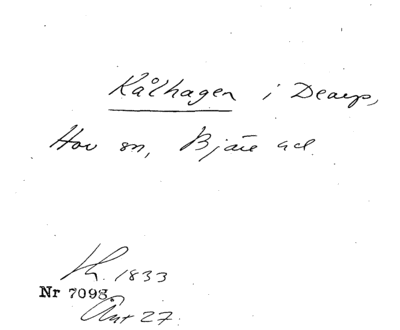 Kålhagen i Dearp,
Hov sn, Bjäre hd.
Lh. 1833
Nr 7098
Ant 27.